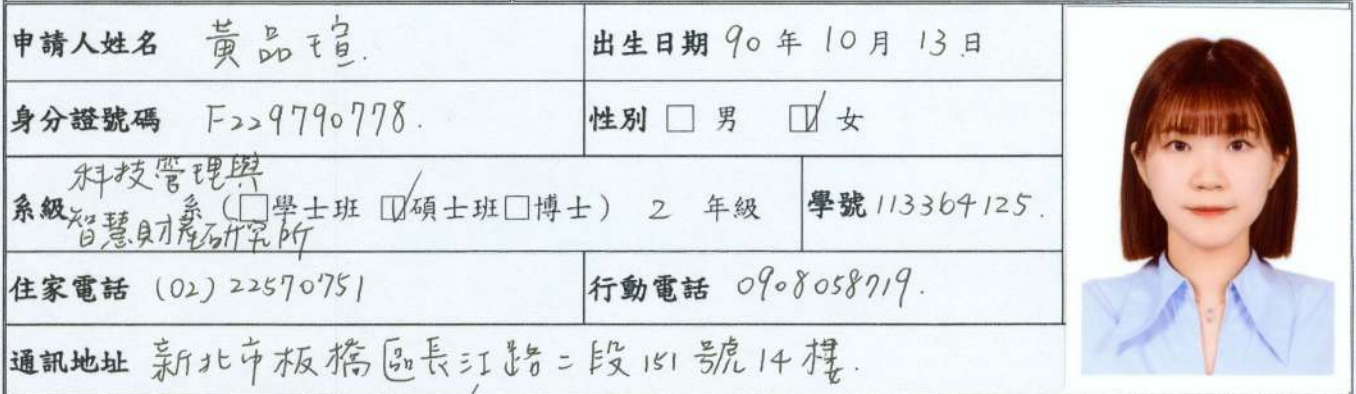 申請人姓名 黃品瑄. 出生日期 90 年 10 月 13 日
身分證號碼 F229790778. 性別 □ 男 ☑ 女
科技管理與
系級 系 (□學士班 ☑碩士班□博士) 2 年級 學號 113364125.
智慧財產研究所
住家電話 (02) 22570751 行動電話 0908058719.
通訊地址 新北市板橋區長江路二段 151 號 14 樓.